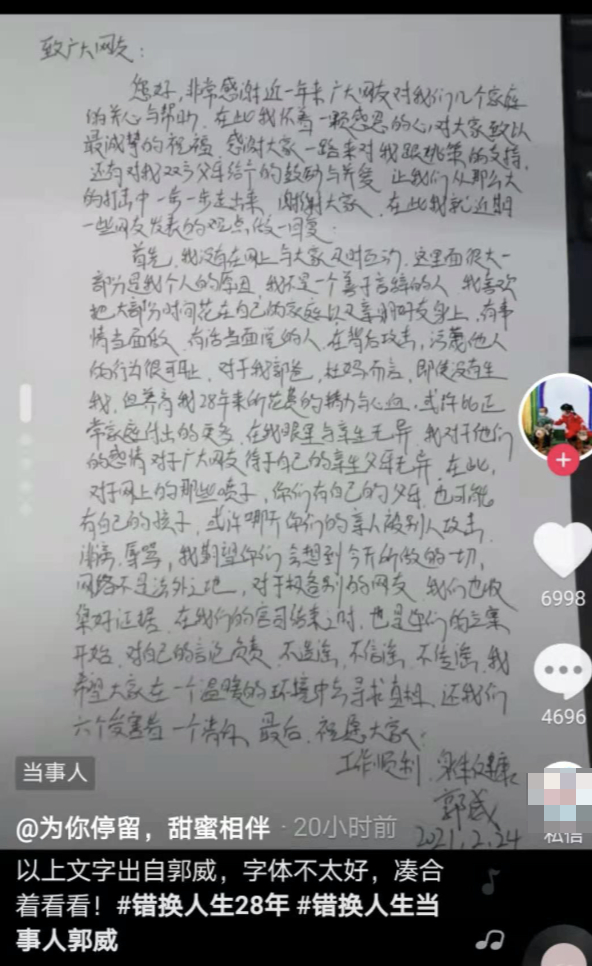 致广大网友：
您好，非常感谢近一年来广大网友对我们几个家庭
的关心与帮助，在此我怀着一颗感恩的心，对大家致以
最诚挚的祝福，感谢大家一路来对我跟姚策的支持，
还有对我双方父母给予的鼓励与关爱，让我们从那么大
的打击中一步一步走出来，谢谢大家，在此我就近期
一些网友发表的观点，做一回复。
首先，我没有在网上与大家及时互动，这里面很大一
部分是我个人的原因，我不是一个善于言辞的人，我喜欢
把大部分时间花在自己的家庭以及亲朋好友身上，有事
情当面做，有话当面说的人，在背后攻击，污蔑他人
的行为很可耻，对于我郭爸，杜妈而言，即使没有生
我，但养育我28年来所花费的精力与心血，或许比正
常家庭付出的更多，在我眼里与亲生无异，我对于他们
的感情对于广大网友待于自己的亲生父母无异，在此，
对于网上的那些喷子，你们有自己的父母，也可能
有自己的孩子，或许哪天你们的亲人被别人攻击，
诽谤，辱骂，我期望你们会想到今天所做的一切，
网络不是法外之地，对于极各别的网友，我们也收
集好证据，在我们的官司结束之时，也是你们的
开始，对自己的言论负责，不造谣，不信谣，不传谣，我
希望大家在一个温暖的环境中去寻求真相，还我们
六个受害者一个清白，最后，祝愿大家：
工作顺利，身体健康
郭威
2021.2.24
6998
4696
当事人
私信
@为你停留，甜蜜相伴 · 20小时前
以上文字出自郭威，字体不太好，凑合
着看看！#错换人生28年 #错换人生当
事人郭威